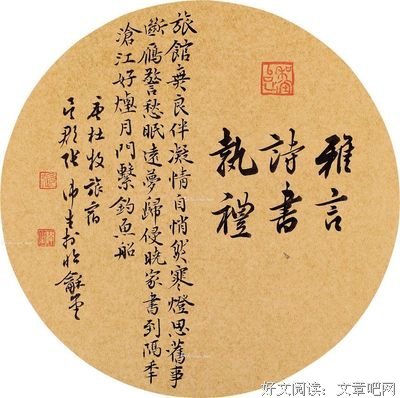 雅言
詩書
執禮
旅館無良伴凝情自悄然寒燈思舊事
斷雁警愁眠遠夢歸侵曉家書到隔年
滄江好煙月門繫釣魚船
唐杜牧旅宿
好文阅读：文章吧网